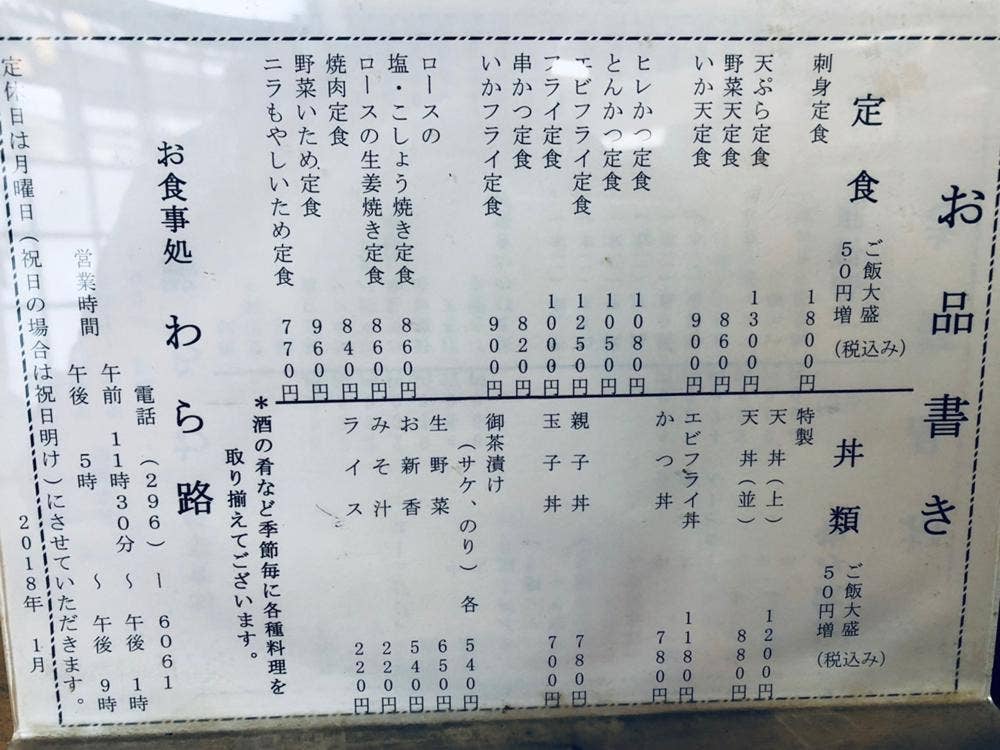 お品書き
定食
ご飯大盛
50円増
(税込み)
刺身定食 1800円
天ぷら定食 1300円
野菜天定食 860円
いか天定食 900円
ヒレかつ定食 1080円
とんかつ定食 1050円
エビフライ定食 1250円
フライ定食 1000円
串かつ定食 820円
いかフライ定食 900円
ロースの
塩・こしょう焼き定食 860円
ロースの生姜焼き定食 860円
焼肉定食 840円
野菜いため定食 960円
ニラもやしいため定食 770円
丼類
ご飯大盛
50円増
(税込み)
特製
天丼(上) 1200円
天丼(並) 880円
エビフライ丼 1180円
かつ丼 780円
親子丼 780円
玉子丼 700円
御茶漬け
(サケ、のり) 各 540円
生野菜 650円
お新香 540円
みそ汁 220円
ライス 220円
*酒の肴など季節毎に各種料理を
取り揃えてございます。
お食事処 わら路
電話 (296) ー 6061
営業時間 午前 11時30分 ~ 午後 1時
午後 5時 ~ 午後 9時
定休日は月曜日(祝日の場合は祝日明け)にさせていただきます。
2018年 1月